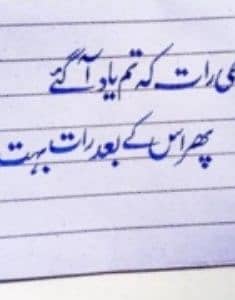 رات کہ تم یاد آ گئے
پھر اس کے بعد رات بہت